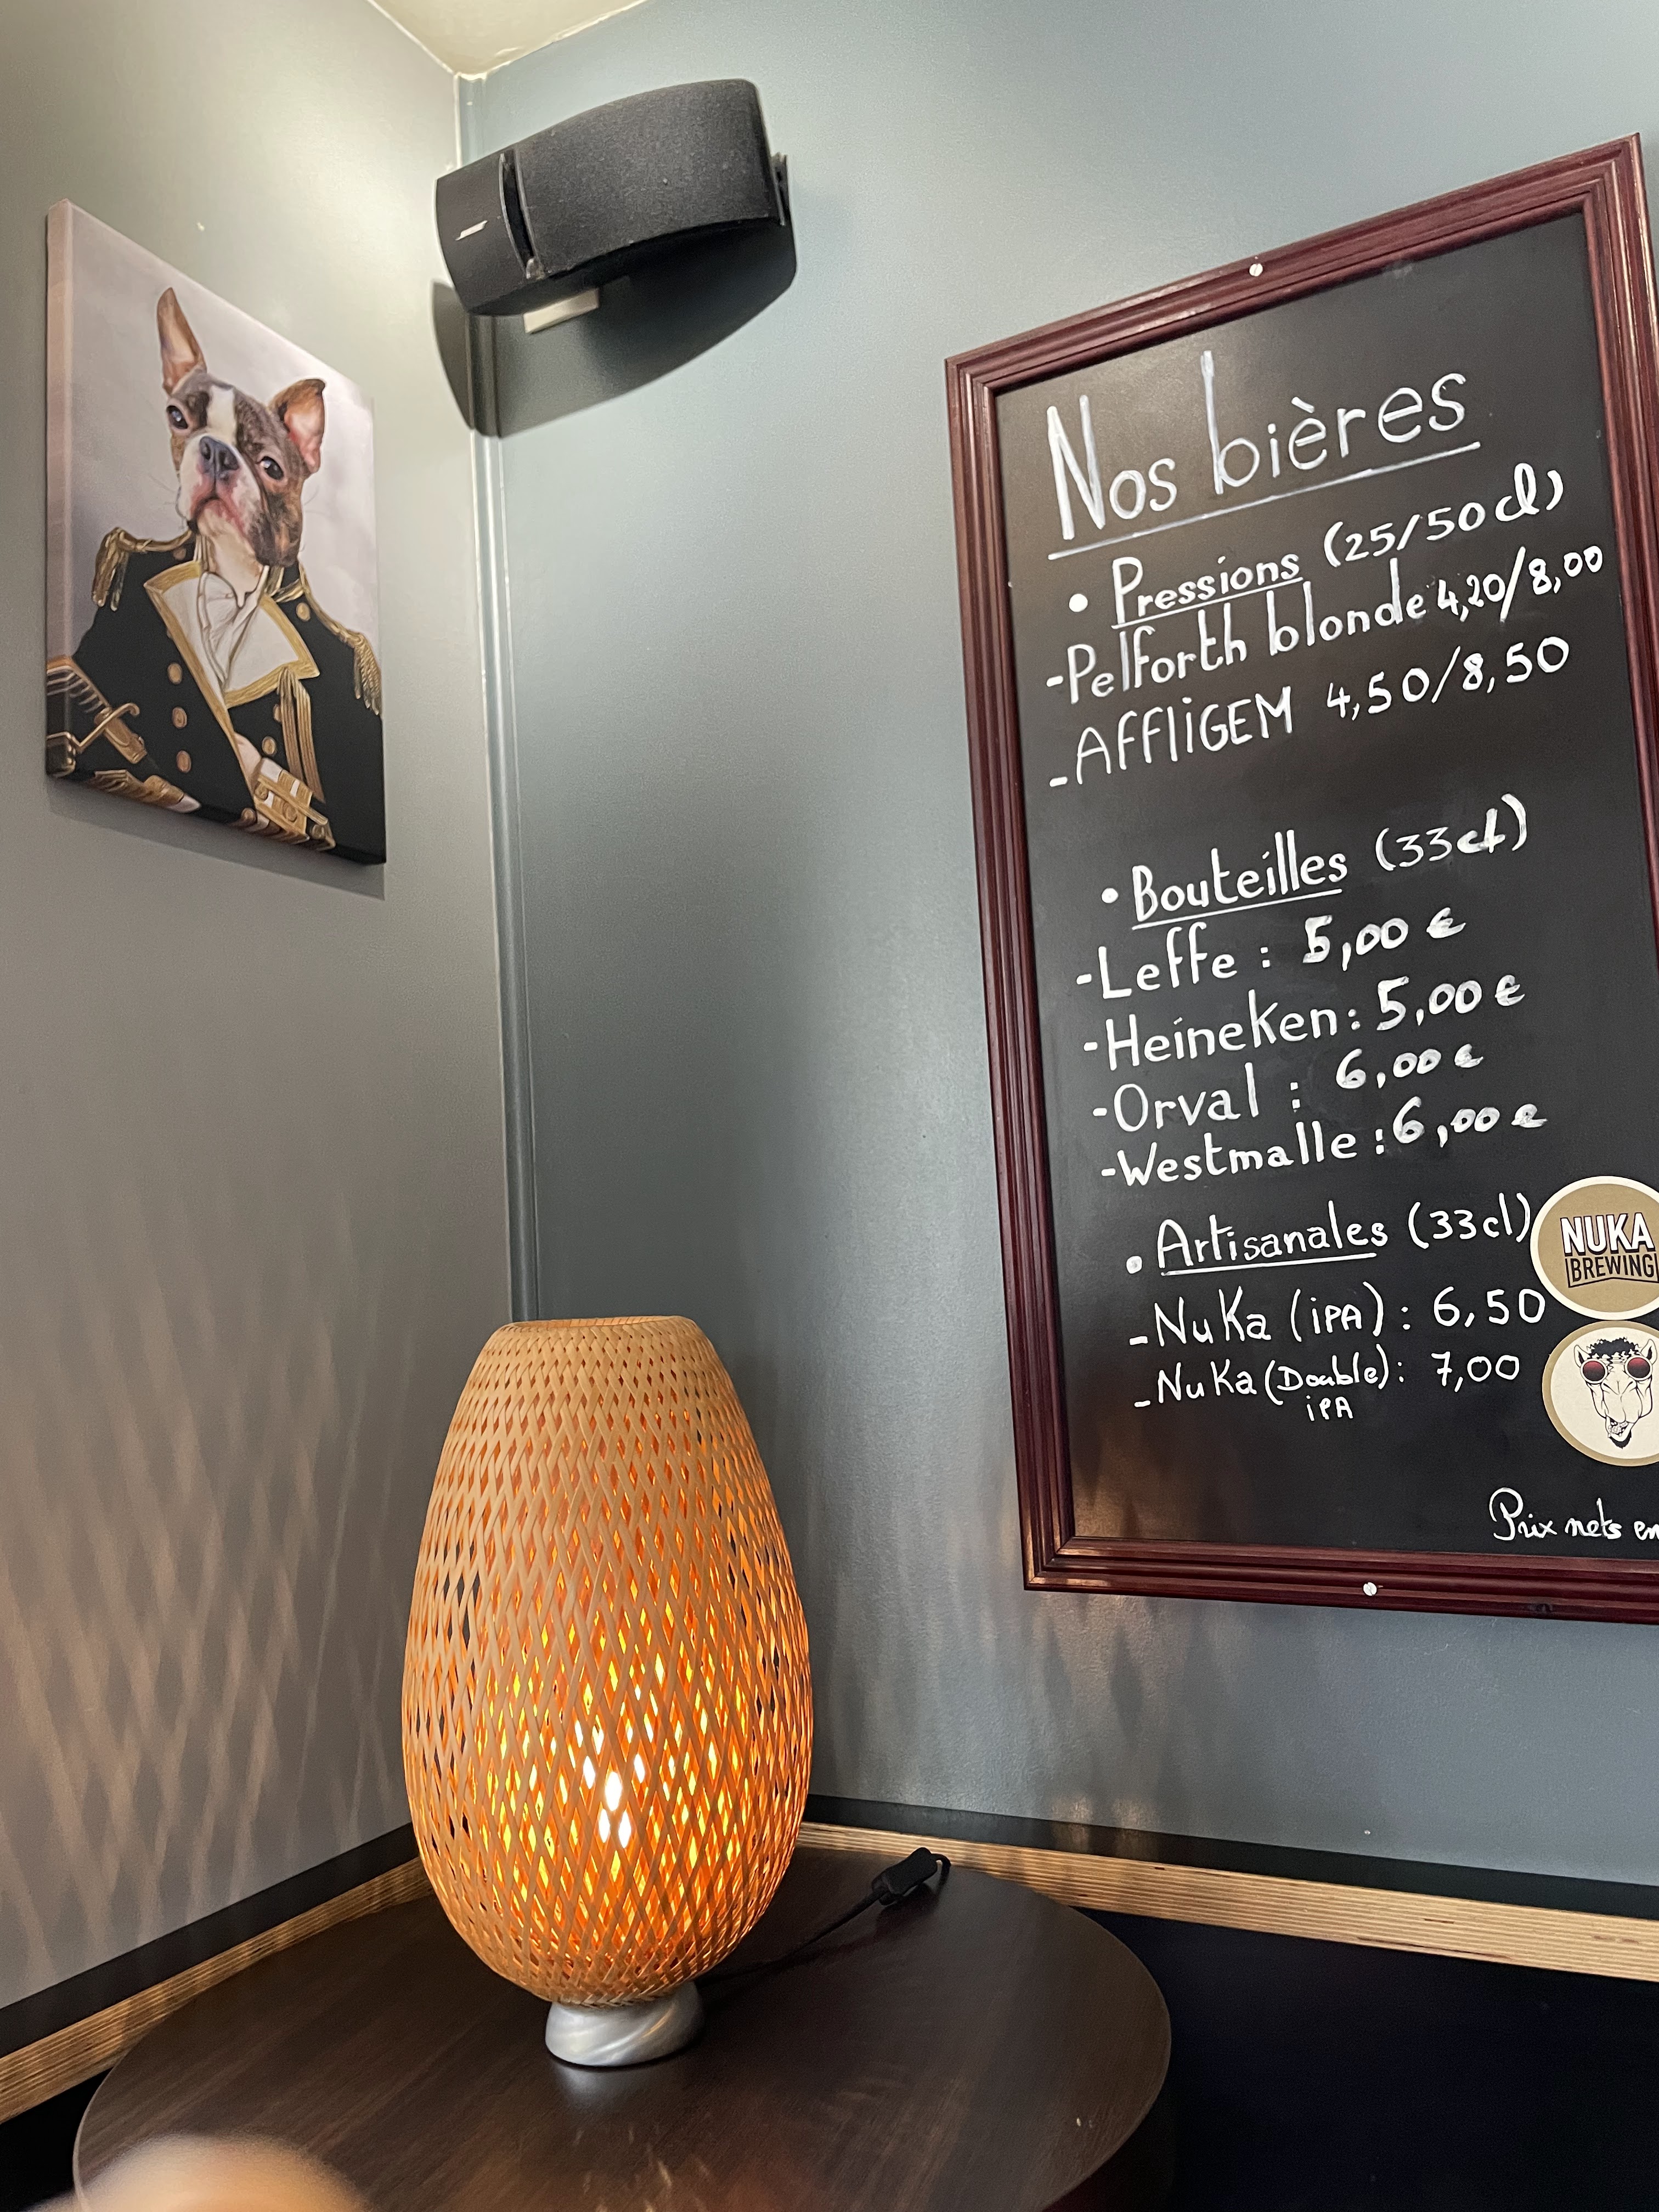 Nos bières
• Pressions (25/50 cl)
-Pelforth blonde 4,20/8,00
-AFFLiGEM 4,50/8,50
• Bouteilles (33cl)
-Leffe : 5,00 €
-Heineken : 5,00 €
-Orval : 6,00 €
-Westmalle : 6,00 €
• Artisanales (33cl)
NUKA
BREWING
-NuKa (iPA) : 6,50
-NuKa (Double) : 7,00
iPA
Prix nets en